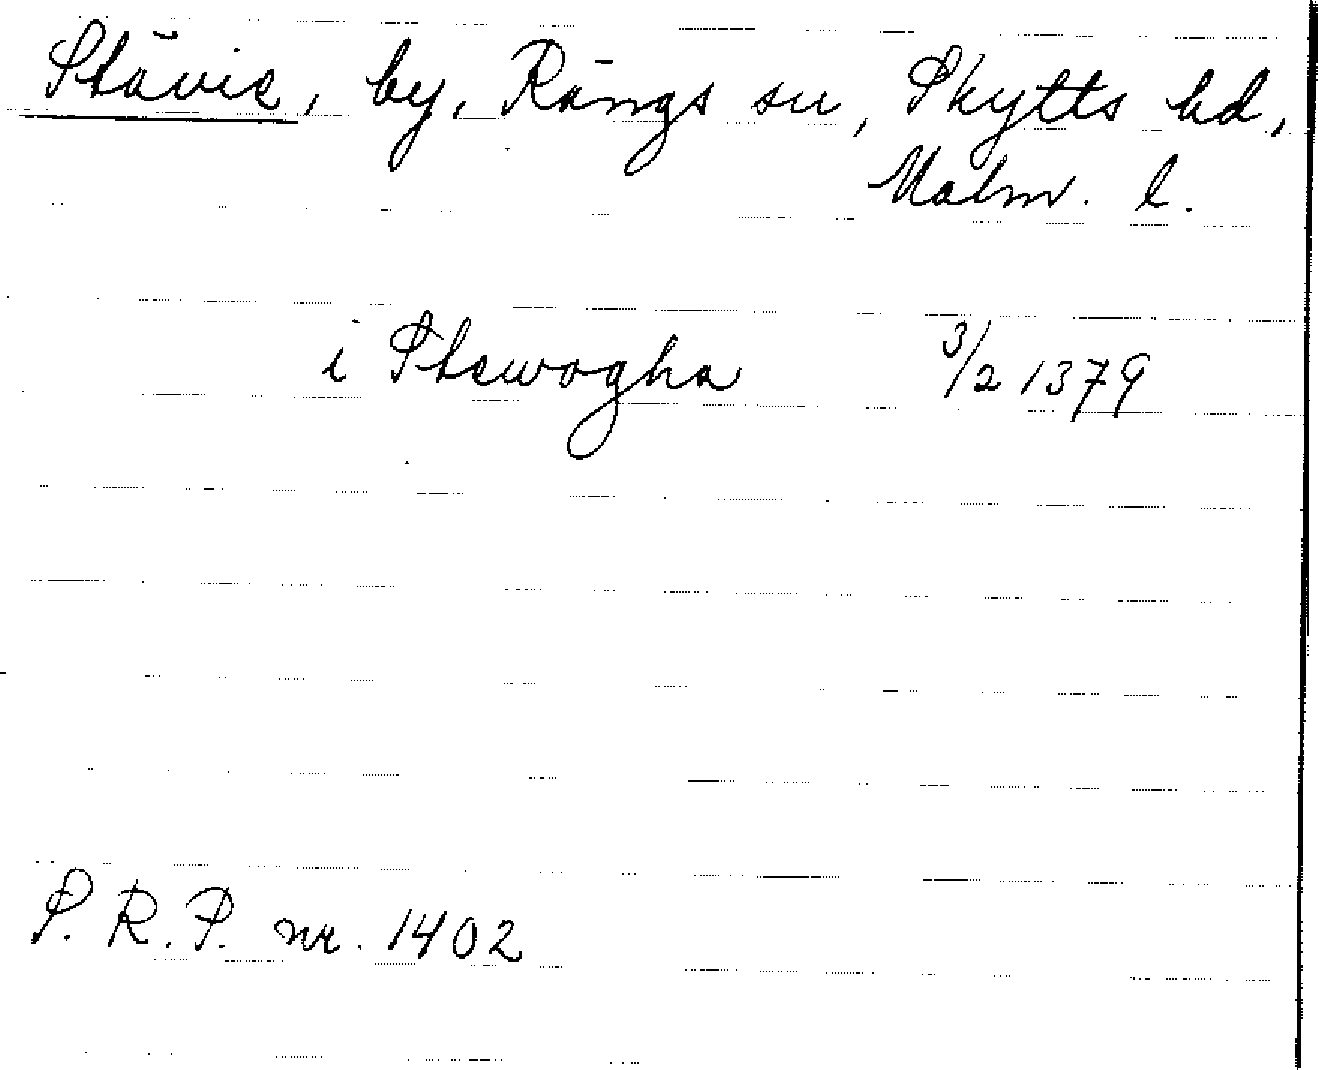 Stävie, by, Rängs sn, Skytts hd,
Malm. l.
i Stewogha 3/2 1379
S. R. P. nr. 1402